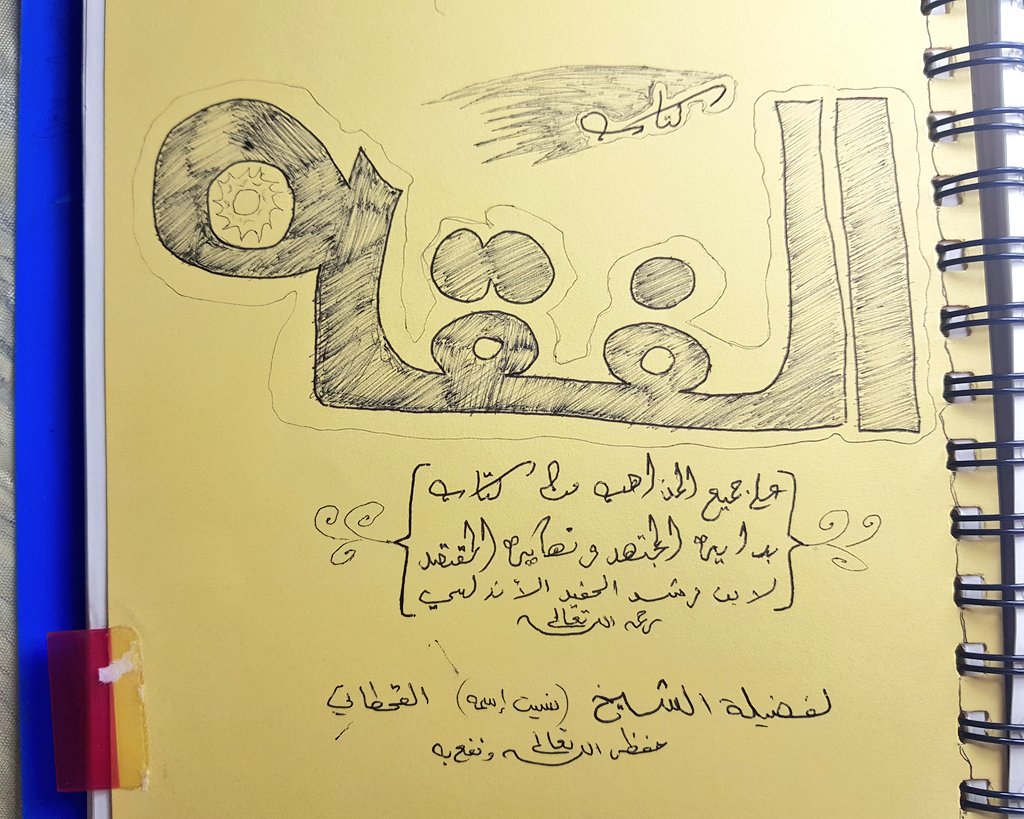 كتاب
الفقه
على جميع المذاهب من كتاب
بداية المجتهد ونهاية المقتصد
لابن رشد الحفيد الأندلسي
رحمه الله تعالى
لفضيلة الشيخ (نسيت إسمه) القحطاني
حفظه الله تعالى ونفع به